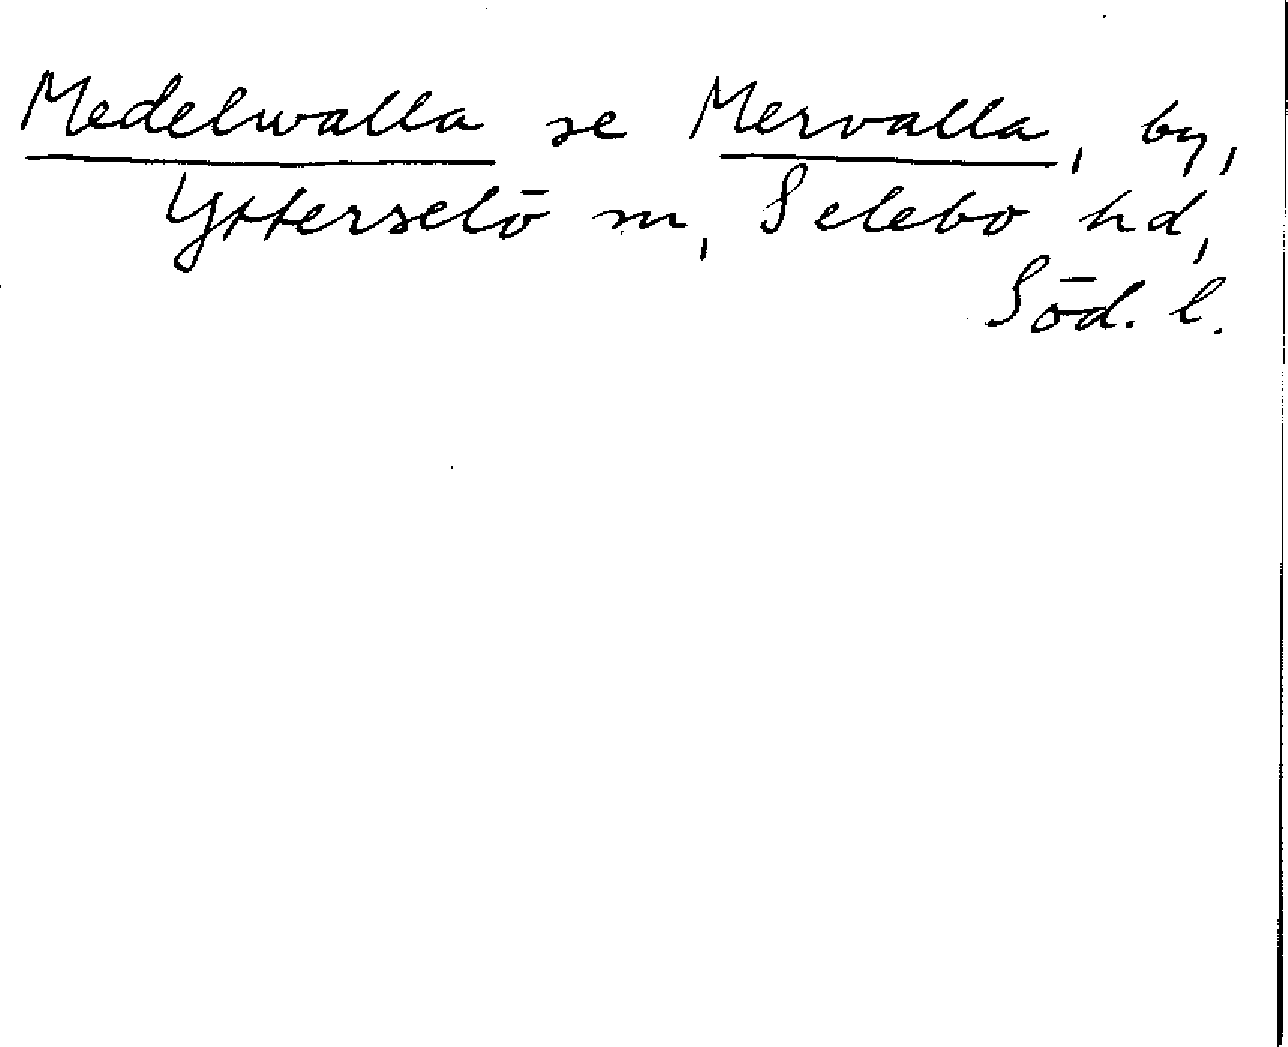 Medelwalla se Mervalla, by,
Ytterselö sn, Selebo hd,
Söd. l.